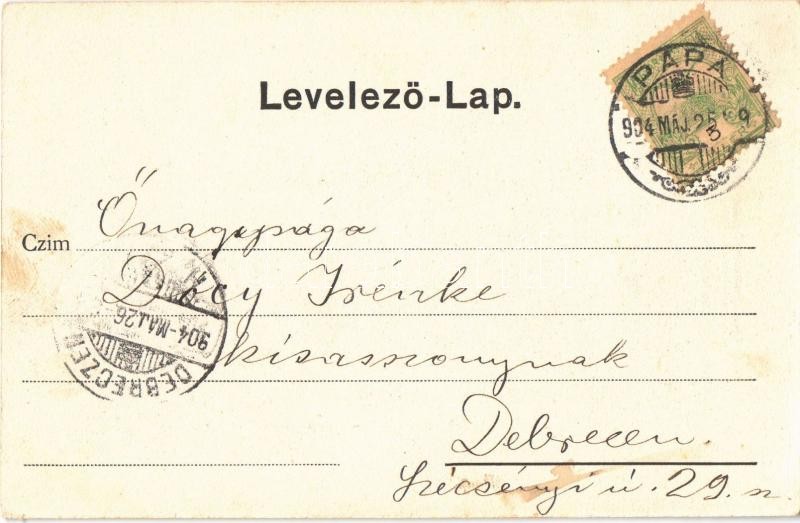 Levelező-Lap.
PÁPA
904 MÁJ. 25
Czim
Őnagysága
Dócy Irénke
kisasszonynak
Debrecen.
Szécsényi ú. 29. sz.
DEBRECZEN
904-MÁJ. 26